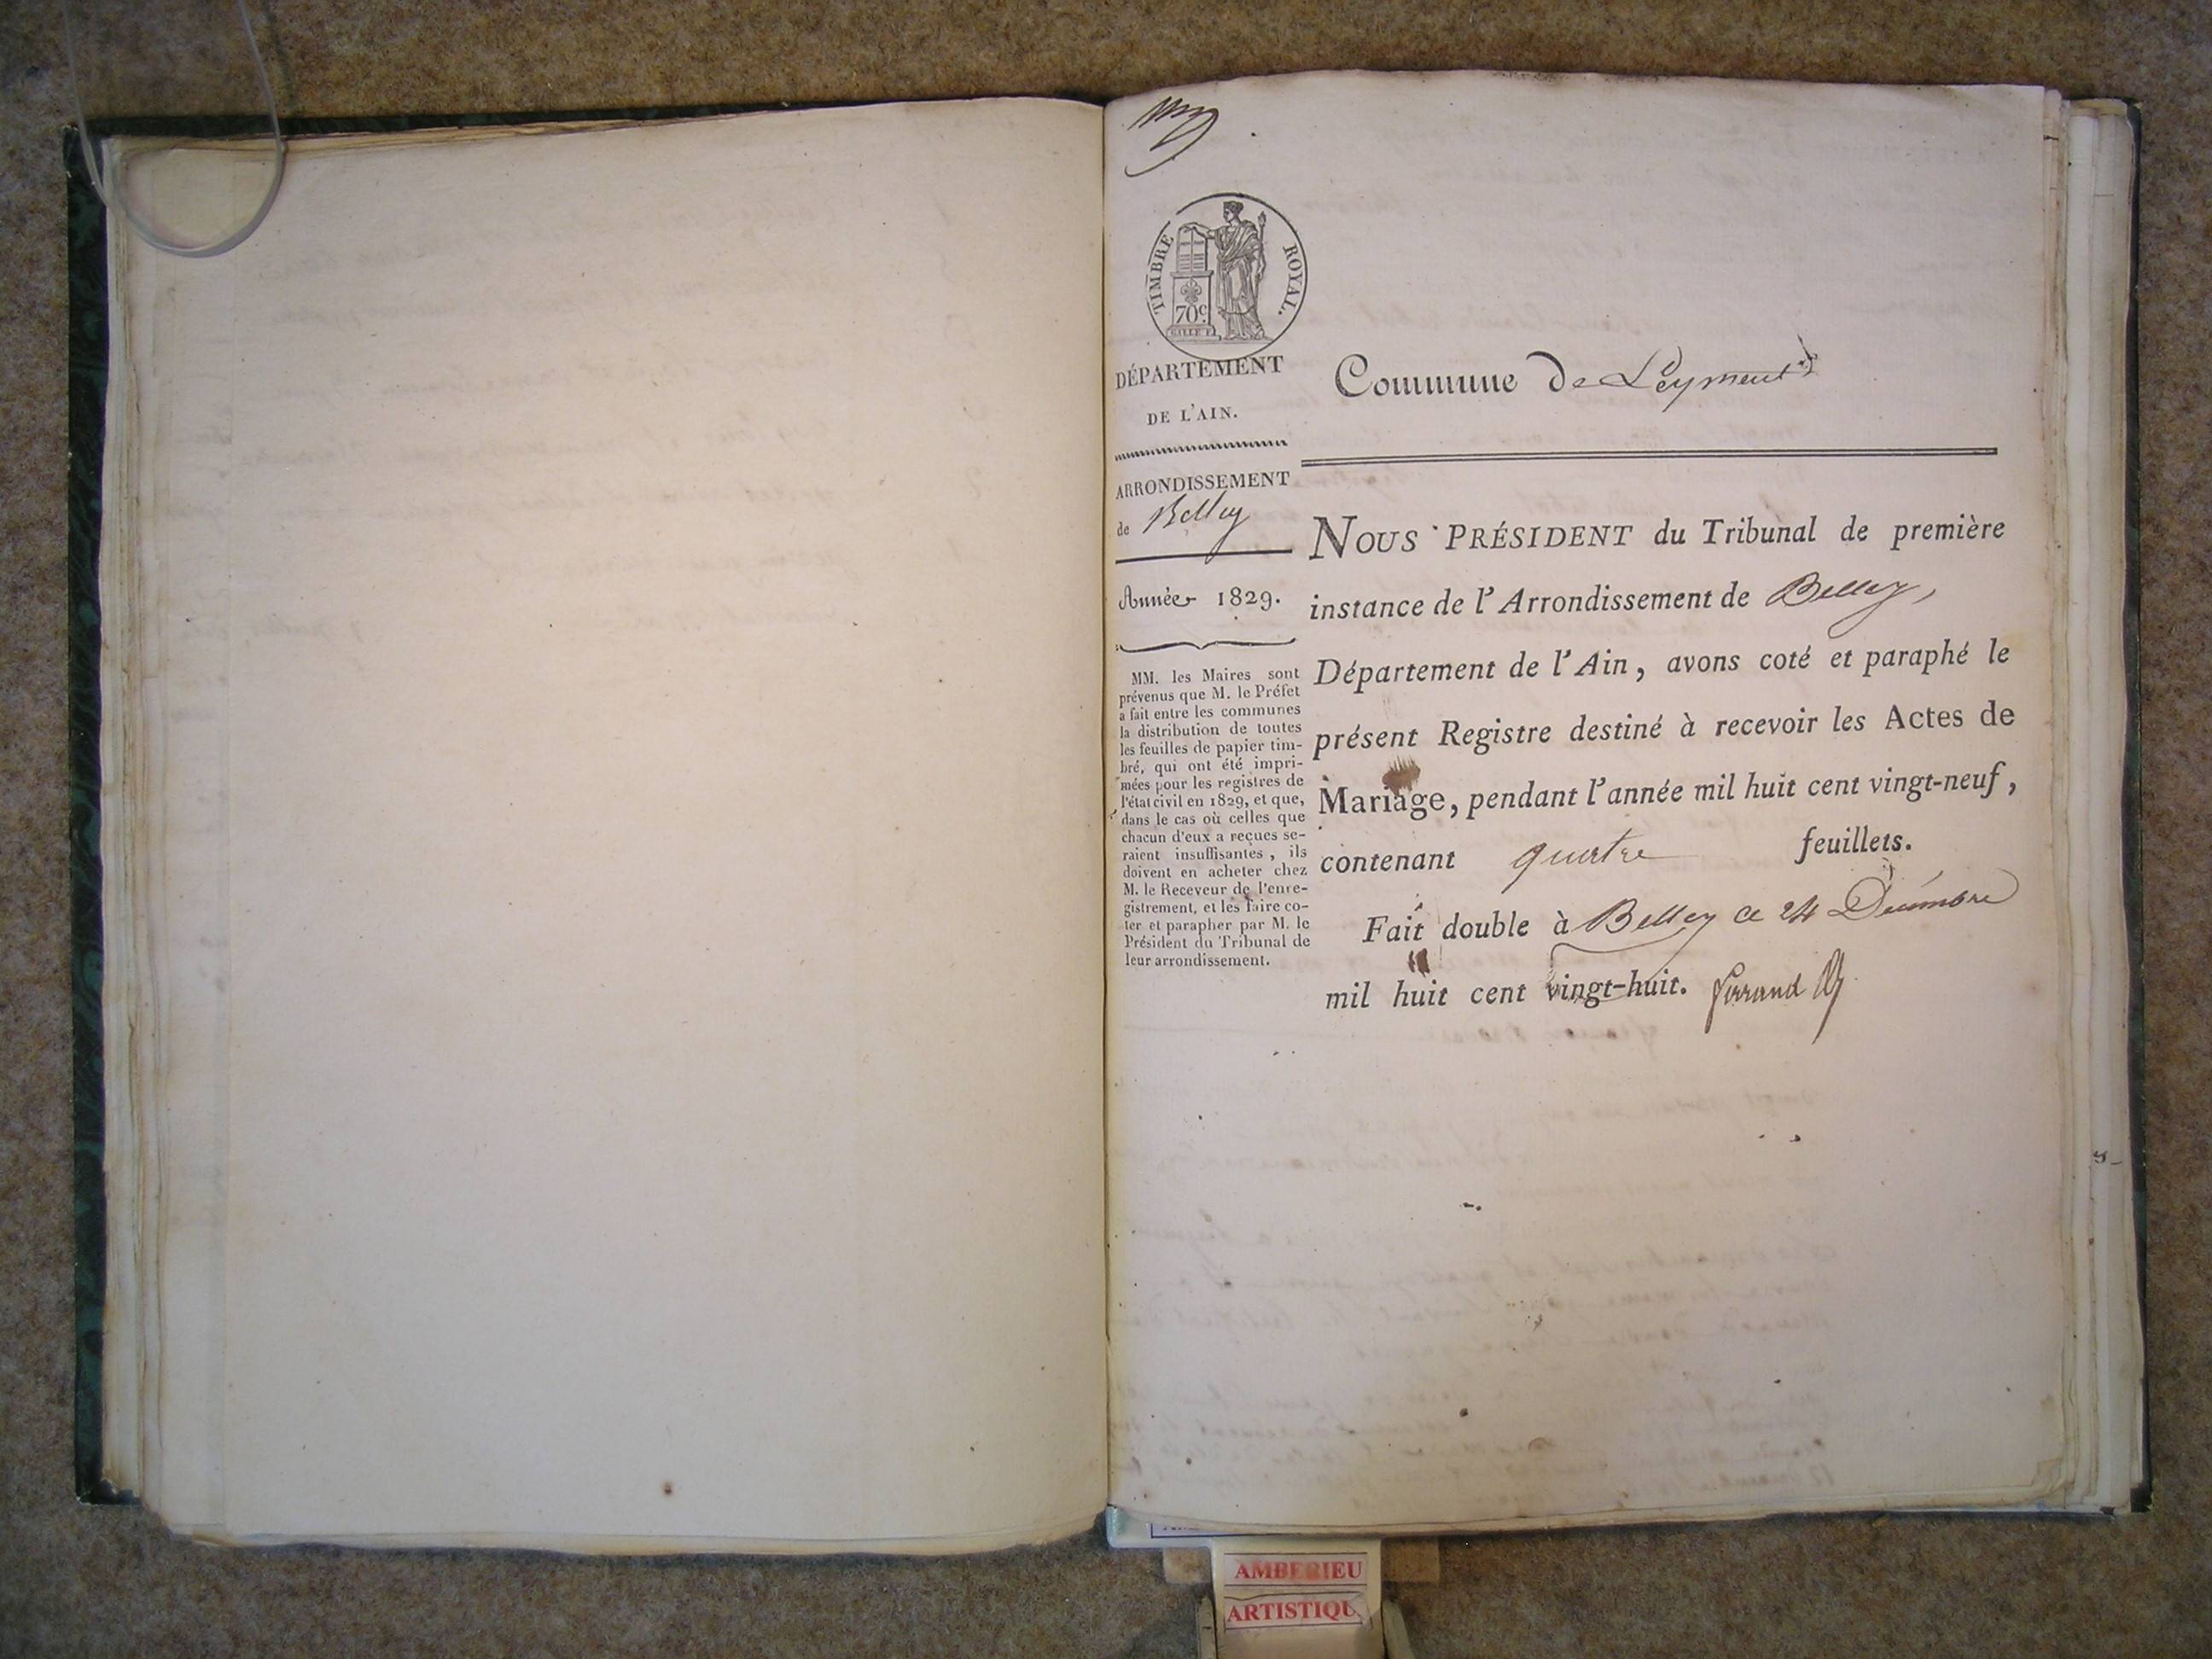 TIMBRE ROYAL.
70c
DÉPARTEMENT
DE L'AIN.
ARRONDISSEMENT
de Belley
Année 1829.
MM. les Maires sont
prévenus que M. le Préfet
a fait entre les communes
la distribution de toutes
les feuilles de papier tim-
bré, qui ont été impri-
mées pour les registres de
l'état civil en 1829, et que,
dans le cas où celles que
chacun d'eux a reçues se-
raient insuffisantes, ils
doivent en acheter chez
M. le Receveur de l'enre-
gistrement, et les faire co-
ter et parapher par M. le
Président du Tribunal de
leur arrondissement.
Commune de Leyment
NOUS PRÉSIDENT du Tribunal de première
instance de l'Arrondissement de Belley,
Département de l'Ain, avons coté et paraphé le
présent Registre destiné à recevoir les Actes de
Mariage, pendant l'année mil huit cent vingt-neuf,
contenant quatre feuillets.
Fait double à Belley ce 24 Décembre
mil huit cent vingt-huit.
AMBERIEU
ARTISTIQU